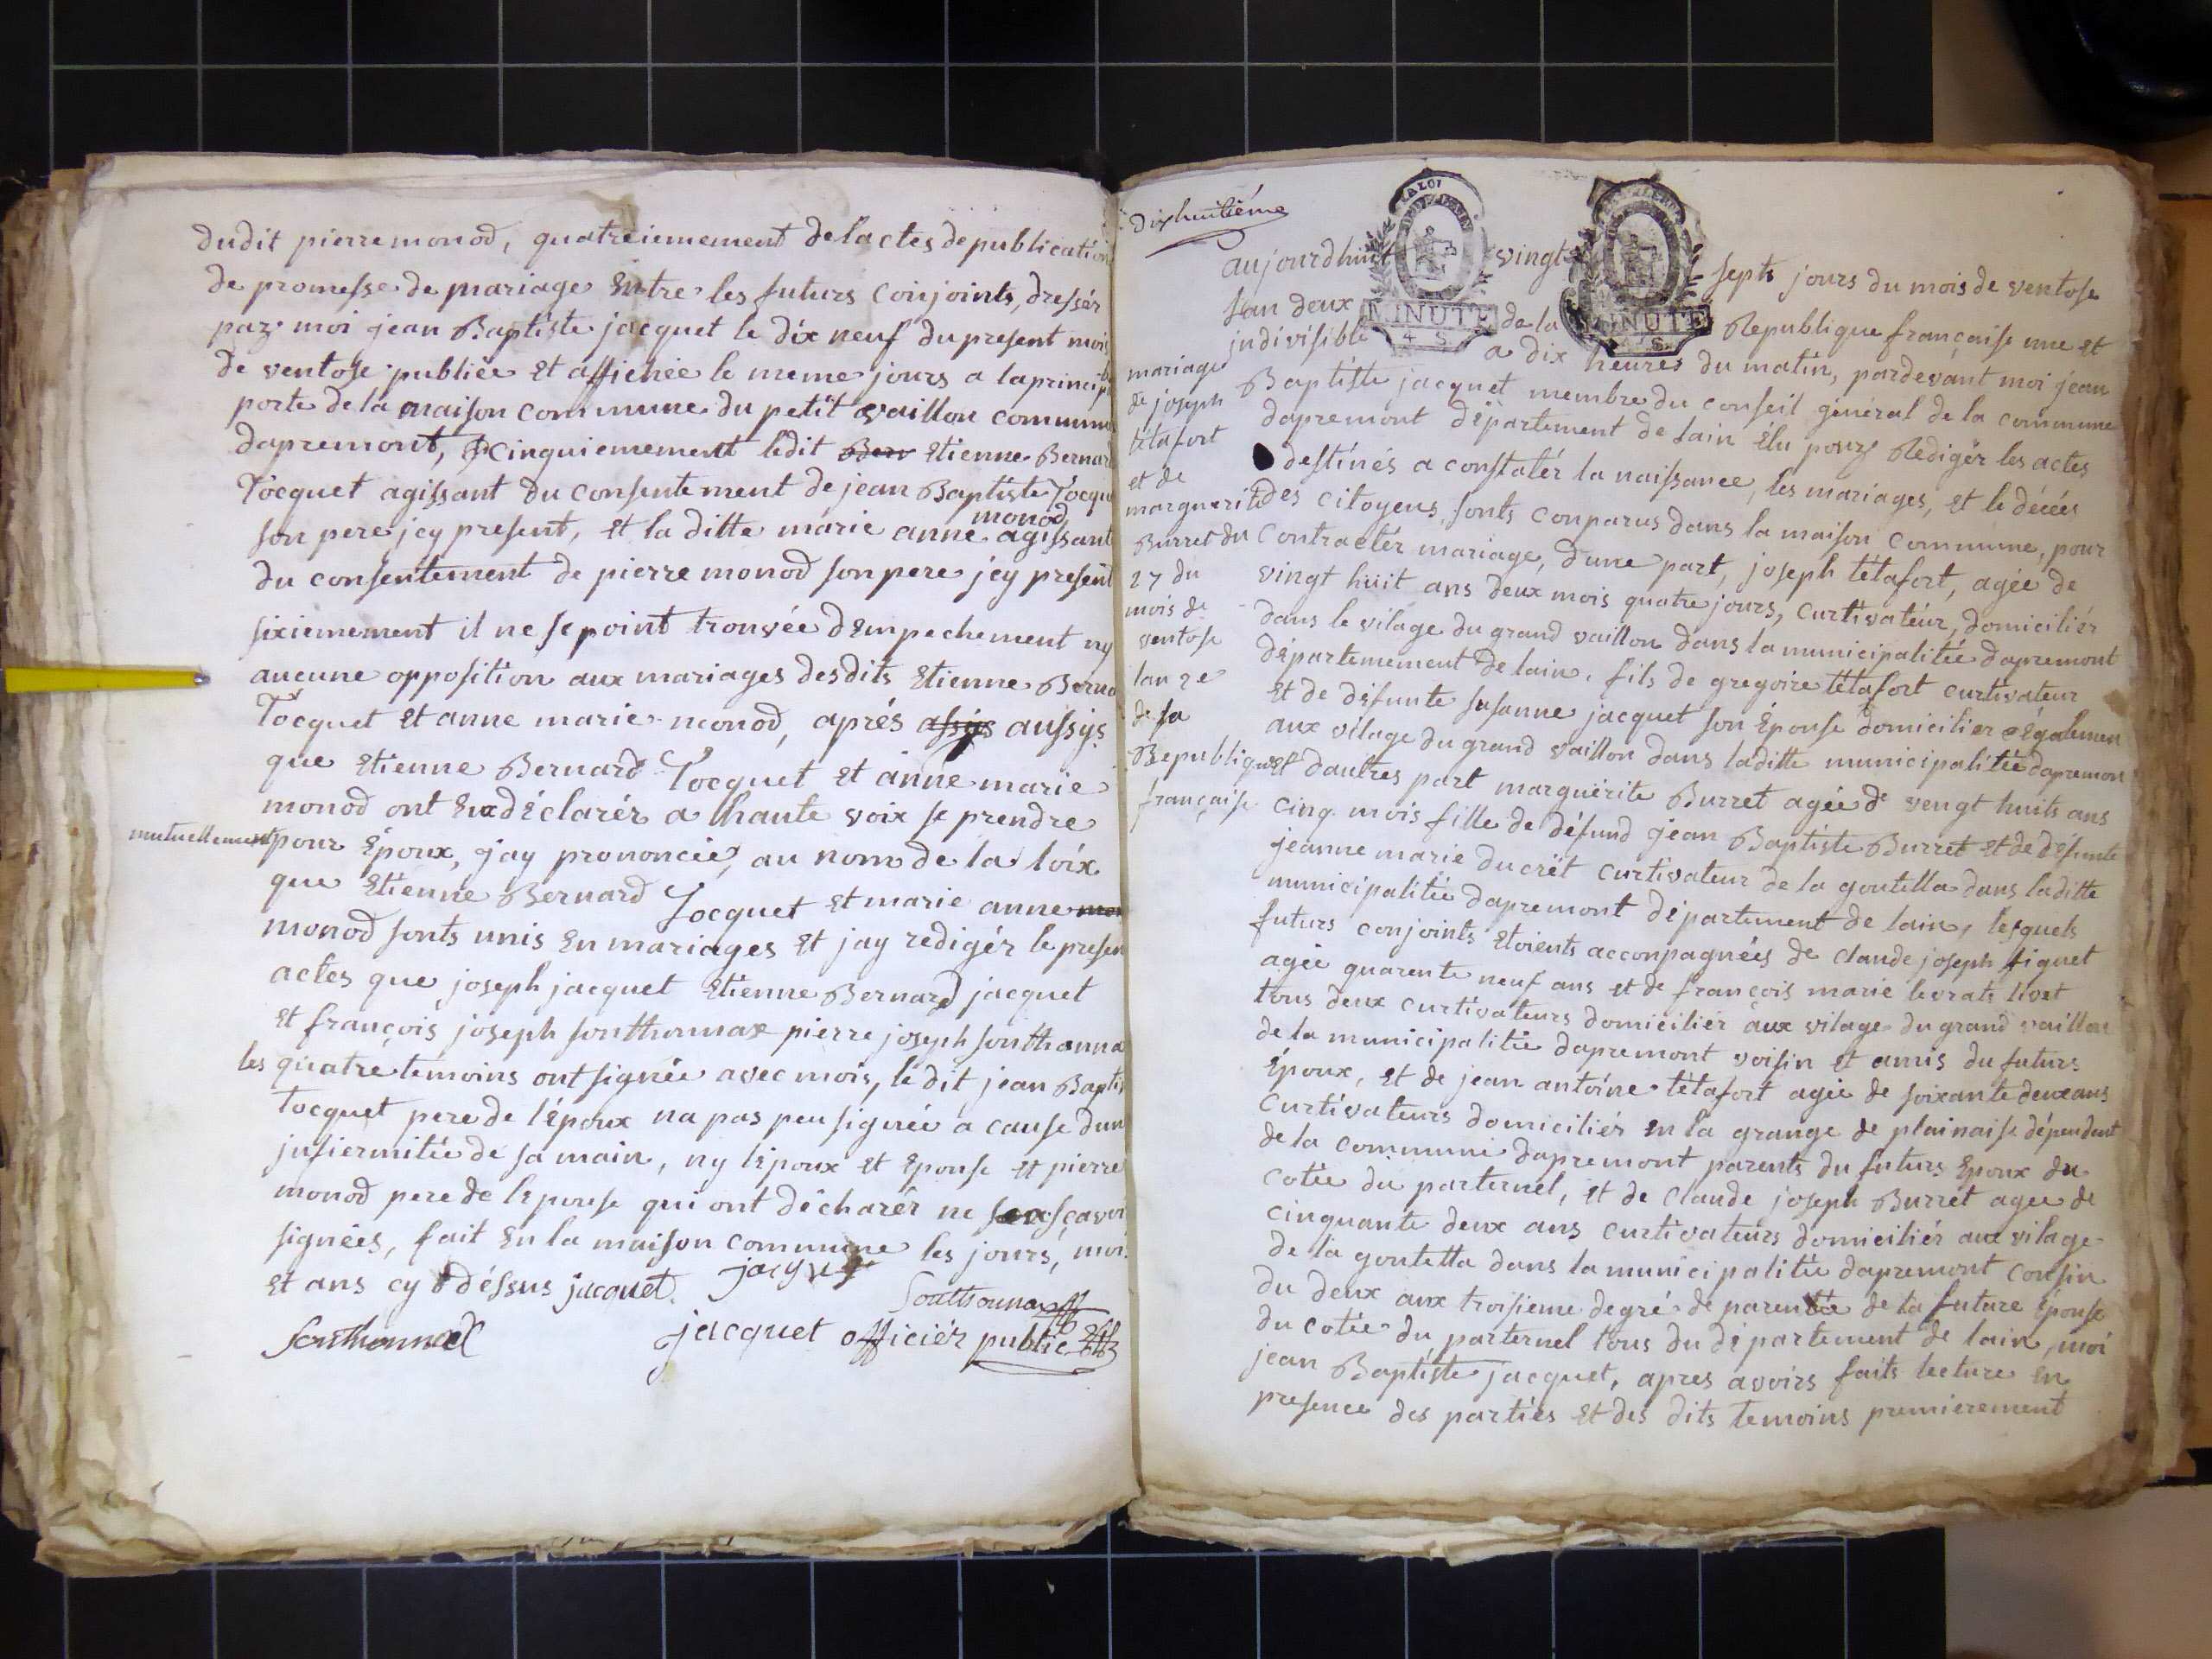 dudit pierre monod, quatreiemement de lactes de publication
de promesse de mariage Entre les futurs Conjoints, dressér
par moi jean Baptiste jacquet le dix neuf du present mois
de ventose publiée et affichée le meme jours a la principa
porte de la maison commune du petit vaillon commun
dapremont, Cinquiemement ledit Etienne Bernard
Tocquet agissant du consentement de jean Baptiste Tocqu
monod
son pere jcy present, et la ditte marie anne agissant
du consentement de pierre monod son pere jcy present
sixiemement il ne se point trouvée dempechement ny
aucune opposition aux mariages desdits Etienne Berna
Tocquet et anne marie monod, aprés assijs aussijs
que Etienne Bernard Tocquet et anne marie
monod ont Eux déclarér a lhaute voix se prendre
mutuellement pour Époux, jay prononcié, au nom de la loix
que Etienne Bernard Tocquet et marie anne mo
monod sonts unis En mariages et jay redigér le presen
actes que joseph jacquet Etienne Bernard jacquet
et françois joseph sonthonnax pierre joseph sonthonna
les quatre temoins ont signée avec mois, le dit jean Baptis
Tocquet pere de lÉpoux na pas peu signée a cause dun
jnfiermitée de sa main, ny lÉpoux et Epouse et pierre
monod pere de lEpouse qui ont décharér ne sçavoi
signées, fait En la maison commune les jours, moi
et ans cy déssus jacquet. jacquet
Sonthonnax
Sonthonnax jacquet officiér public
Dixhuitiéme
LA LOI
aujourdhuit vingt septs jours du mois de ventose
lan deux de la Republique française une et
MINUTE MINUTE
4 S
indivisible a dix heures du matin, pardevant moi jean
Baptiste jacquet membre du conseil général de la commune
dapremont département de lain Élu pour Redigér les actes
destinés a constatér la naissance, les mariages, et le décés
des citoyens, sonts conparus dans la maison commune, pour
Contractér mariage, dune part, joseph tétafort, agée de
vingt huit ans deux mois quatre jours, Curtivatéur, domiciliér
dans le vilage du grand vaillon dans la municipalitée dapremont
départemement de lain, fils de gregoire tétafort curtivateur
et de défunte susanne jacquet son Épouse domicilier Également
aux vilage du grand vaillon dans laditte municipalitée dapremon
et dautres part marguerite Burret agée de vengt huits ans
cinq mois fille de défund jean Baptiste Burret et de défunte
jeanne marie ducrét curtivateur de la goutella dans laditte
municipalitée dapremont département de lain, lesquels
futurs conjoints Etoients acconpagnéés de claude joseph figuet
agée quarente neuf ans et de françois marie levrats livet
tous deux curtivateurs domiciliér aux vilage du grand vaillon
de la municipalitée dapremont voisin et amis du futurs
Époux, et de jean antoine tétafort agée de soixante deux ans
curtivateurs domiciliér en la grange de plainaise dépendent
de la commune dapremont parents du futurs Epoux du
cotée du parternel, et de claude joseph Burret agee de
cinquante deux ans curtivateurs domiciliér aux vilage
de la goutetta dans la municipalitée dapremont cousin
du deux aux troisieme degré de parentée de la future Épouse
du cotée du parternel tous du département de lain, moi
jean Baptiste jacquet, apres avoirs faits lecture en
presence des parties et des dits temoins premierement
mariage
de joseph
tétafort
et de
marguerite
Burret du
27 du
mois de
ventose
lan 2e
de la
Republique
française